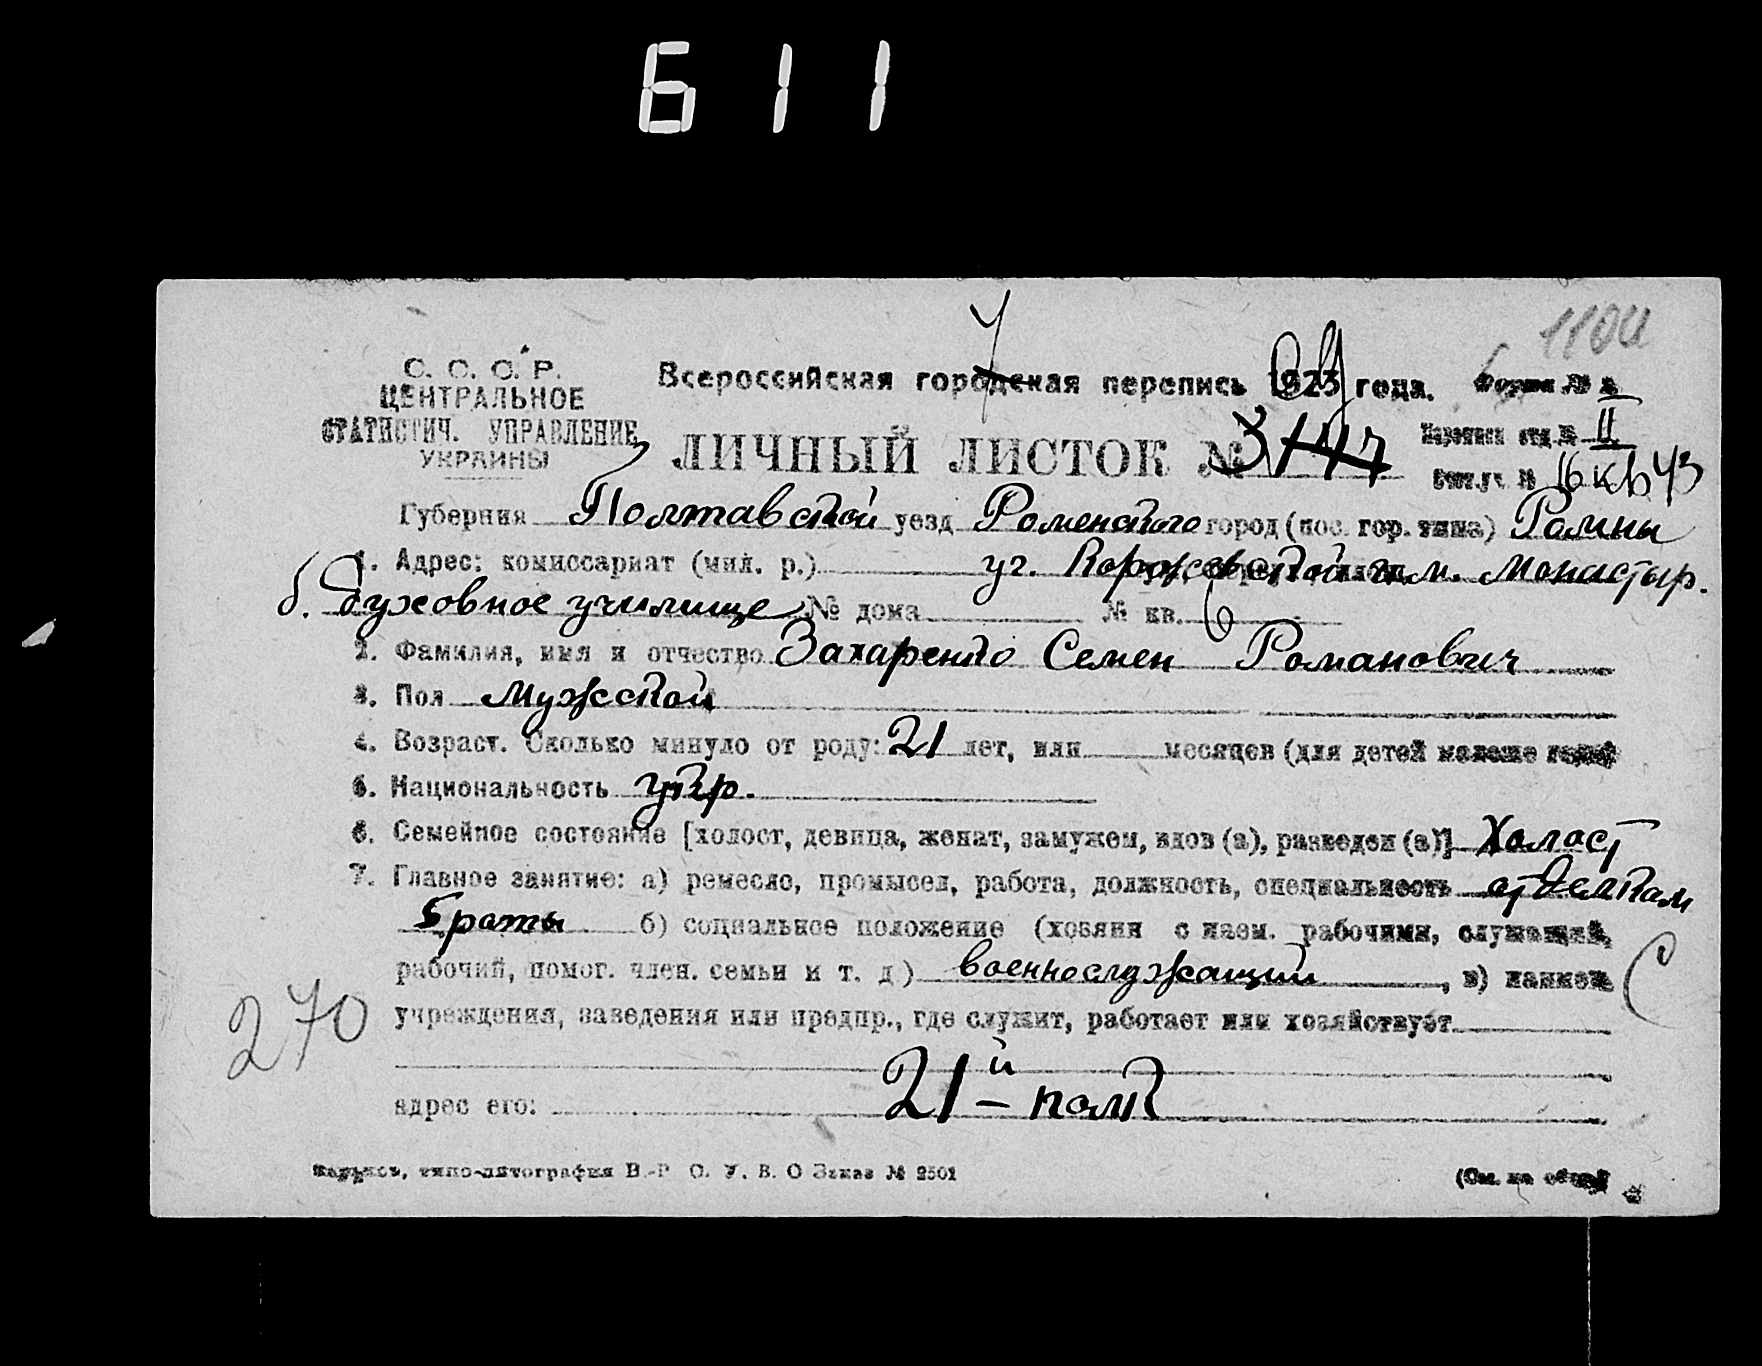 611
1104
С. С. С. Р.
ЦЕНТРАЛЬНОЕ
СТАТИСТИЧ. УПРАВЛЕНИЕ
УКРАИНЫ
Всероссийская городская перепись 1923 года. Форма №
ЛИЧНЫЙ ЛИСТОК № 3147
Переписн. отд. № II
Счет. уч. № 16 кв 43
Губерния Полтавской уезд Роменского город (пос. гор. типа) Ромны
1. Адрес: комиссариат (мил. р.) уг. и м. Монастыр.
б. Духовное училище № дома № кв. 6
2. Фамилия, имя и отчество Захаренко Семен Романович
3. Пол Мужской
4. Возраст. Сколько минуло от роду: 21 лет, или месяцев (для детей моложе года)
5. Национальность укр.
6. Семейное состояние [холост, девица, женат, замужем, вдов (а), разведен (а)] Холост
7. Главное занятие: а) ремесло, промысел, работа, должность, специальность отделком
б) социальное положение (хозяин с наем. рабочими, служащий,
рабочий, помог. член. семьи и т. д) военнослужащий, в) наимен.
С
учреждения, заведения или предпр., где служит, работает или хозяйствует
270
адрес его: 21й – полк
Харьков, типо-литография В.-Р О. У. В. О Заказ № 2501
(См. на обор